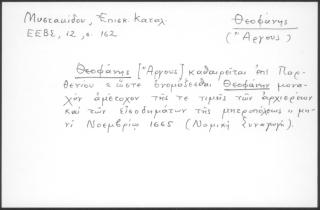 Μυστακίδου, Ἐπισκ. Καταλ.
ΕΕΒΣ, 12, σ. 162
Θεοφάνης
(Ἄργους)
Θεοφάνης [Ἄργους] καθαιρεῖται ἐπὶ Παρ-
θενίου "ὥστε ὀνομάζεσθαι Θεοφάνην μονα-
χὸν ἀμέτοχον τῆς τε τιμῆς τῶν ἀρχιερέων
καὶ τῶν εἰσοδημάτων τῆς μητροπόλεως" μη-
νὶ Νοεμβρίῳ 1665 (Νομικὴ Συναγωγή).